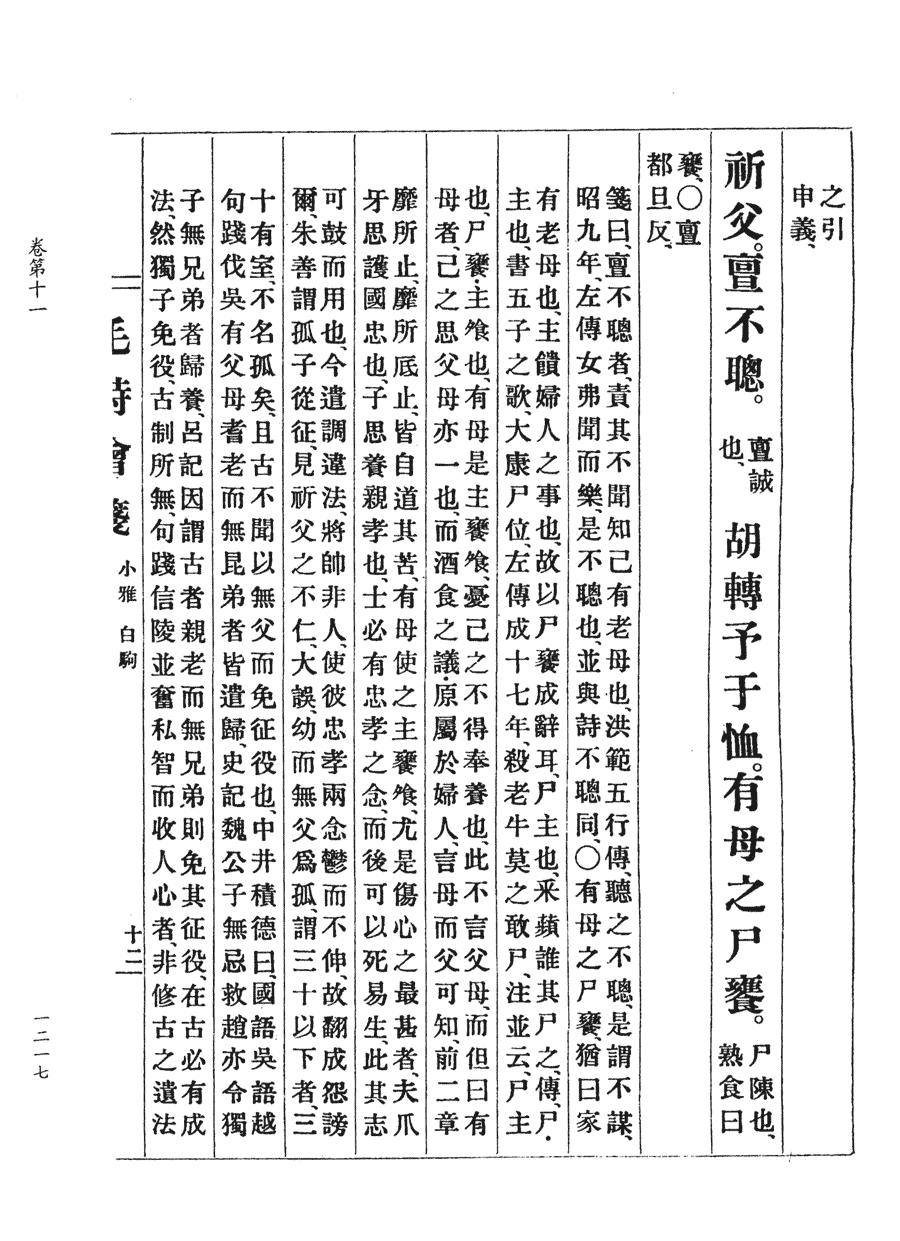 之引
申義、
祈父。亶不聰。亶誠也、胡轉予于恤。有母之尸饔。尸陳也、熟食曰
饔、〇亶
都旦反、
箋曰、亶不聰者、責其不聞知己有老母也、洪範五行傳、聽之不聰、是謂不謀、
昭九年、左傳女弗聞而樂、是不聰也、並與詩不聰同、〇有母之尸饔、猶曰家
有老母也、主饋婦人之事也、故以尸饔成辭耳、尸主也、釆蘋誰其尸之、傳、尸・
主也、書五子之歌、大康尸位、左傳成十七年、殺老牛莫之敢尸、注並云、尸主
也、尸饔・主飧也、有母是主饔飧、憂己之不得奉養也、此不言父母、而但曰有
母者、己之思父母亦一也、而酒食之議・原屬於婦人、言母而父可知、前二章
靡所止、靡所厎止、皆自道其苦、有母使之主饔飧、尤是傷心之最甚者、夫爪
牙思護國忠也、子思養親孝也、士必有忠孝之念、而後可以死易生、此其志
可鼓而用也、今遣調違法、將帥非人、使彼忠孝兩念鬱而不伸、故翻成怨謗
爾、朱善謂孤子從征、見祈父之不仁、大誤、幼而無父爲孤、謂三十以下者、三
十有室、不名孤矣、且古不聞以無父而免征役也、中井積德曰、國語吳語越
句踐伐吳有父母耆老而無昆弟者皆遣歸、史記魏公子無忌救趙亦令獨
子無兄弟者歸養、呂記因謂古者親老而無兄弟則免其征役、在古必有成
法、然獨子免役、古制所無、句踐信陵並奮私智而收人心者、非修古之遺法
毛詩會箋 小雅 白駒 十二
卷第十一
一二一七